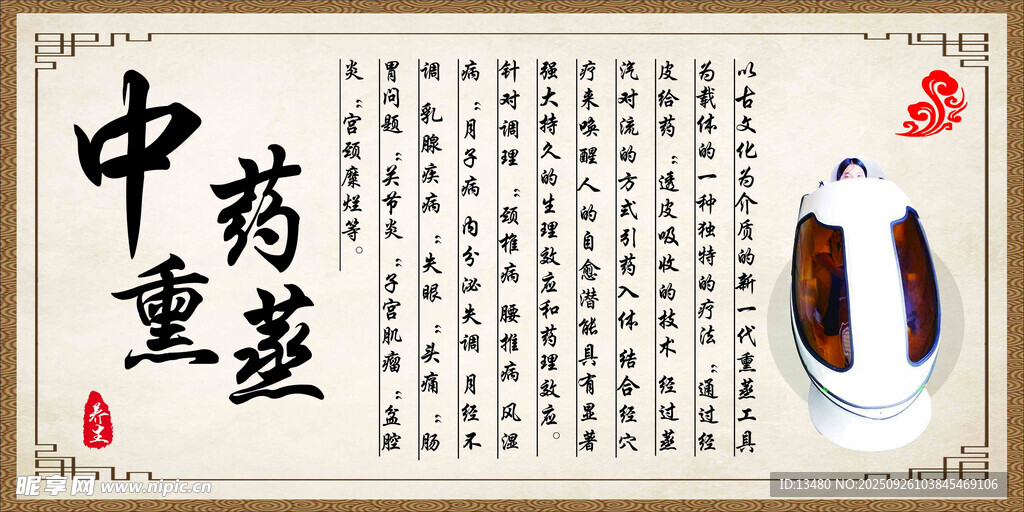 中药熏蒸
养生
以古文化为介质的新一代熏蒸工具
为载体的一种独特的疗法“通过经
皮给药“透皮吸收的技术 经过蒸
汽对流的方式引药入体 结合经穴
疗来唤醒人的自愈潜能具有显著
强大持久的生理效应和药理效应。
针对调理“颈椎病 腰椎病 风湿
病“月子病 内分泌失调 月经不
调 乳腺疾病“失眠“头痛“肠
胃问题“关节炎“子宫肌瘤“盆腔
炎“宫颈糜烂等。
昵享网 www.nipic.cn
ID:13480 NO:20250926103845469106